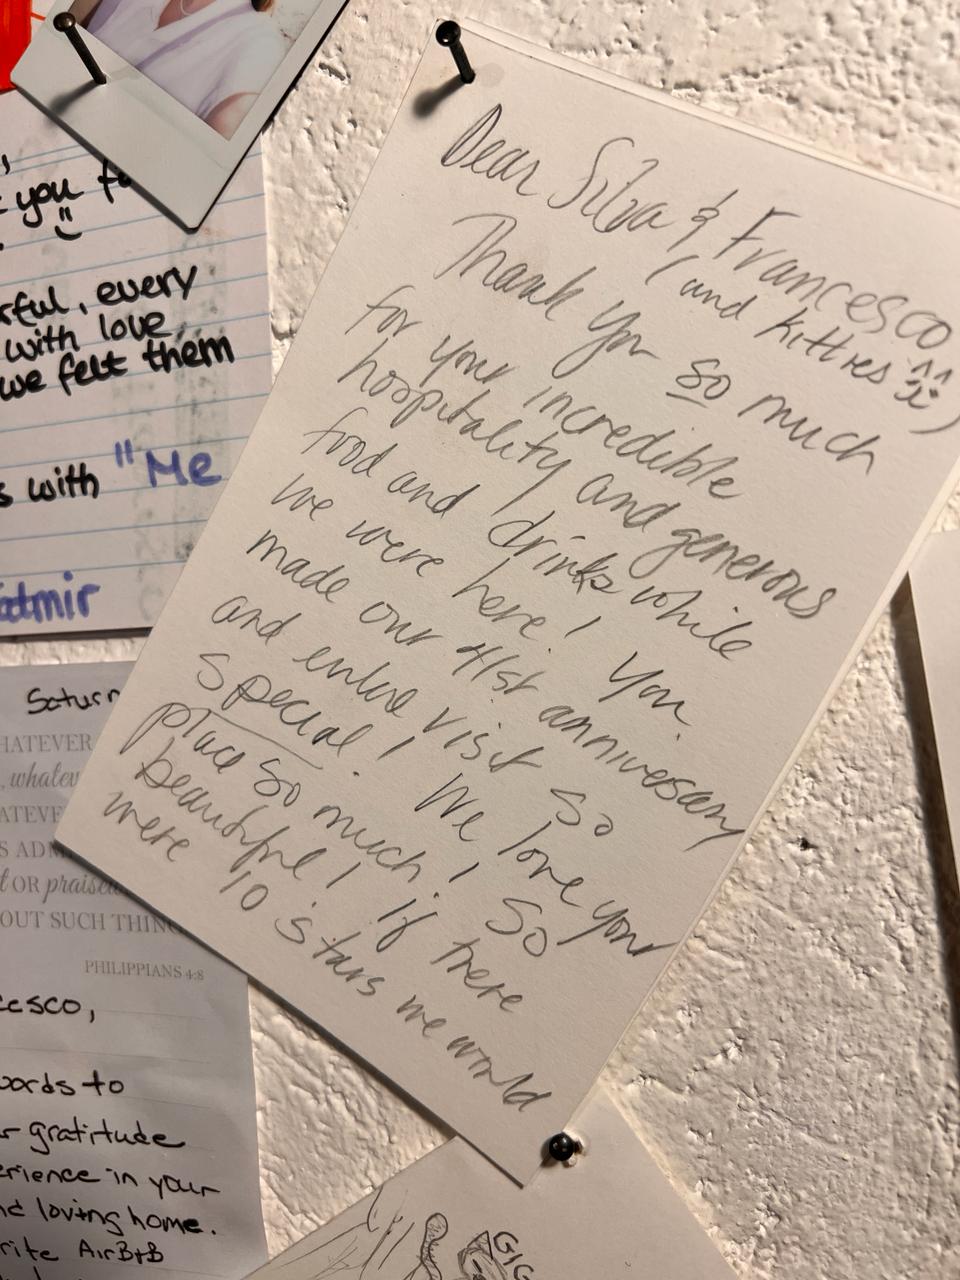 Dear Silva & Francesco
(and kitties)
Thank you so much
for your incredible
hospitality and generous
food and drinks while
we were here! You
made our 41st anniversary
and entire visit so
special! We love your
place so much! So
beautiful! If there
were 10 stars we would
you fo
rful, every
with love,
we felt them
s with "Me
atmir
Saturn
HATEVER
, whatev
ATEVE
S ADM
t OR praise
OUT SUCH THING
PHILIPPIANS 4:8
cesco,
words to
r gratitude
erience in your
nd loving home.
rite AirB+B
GIG